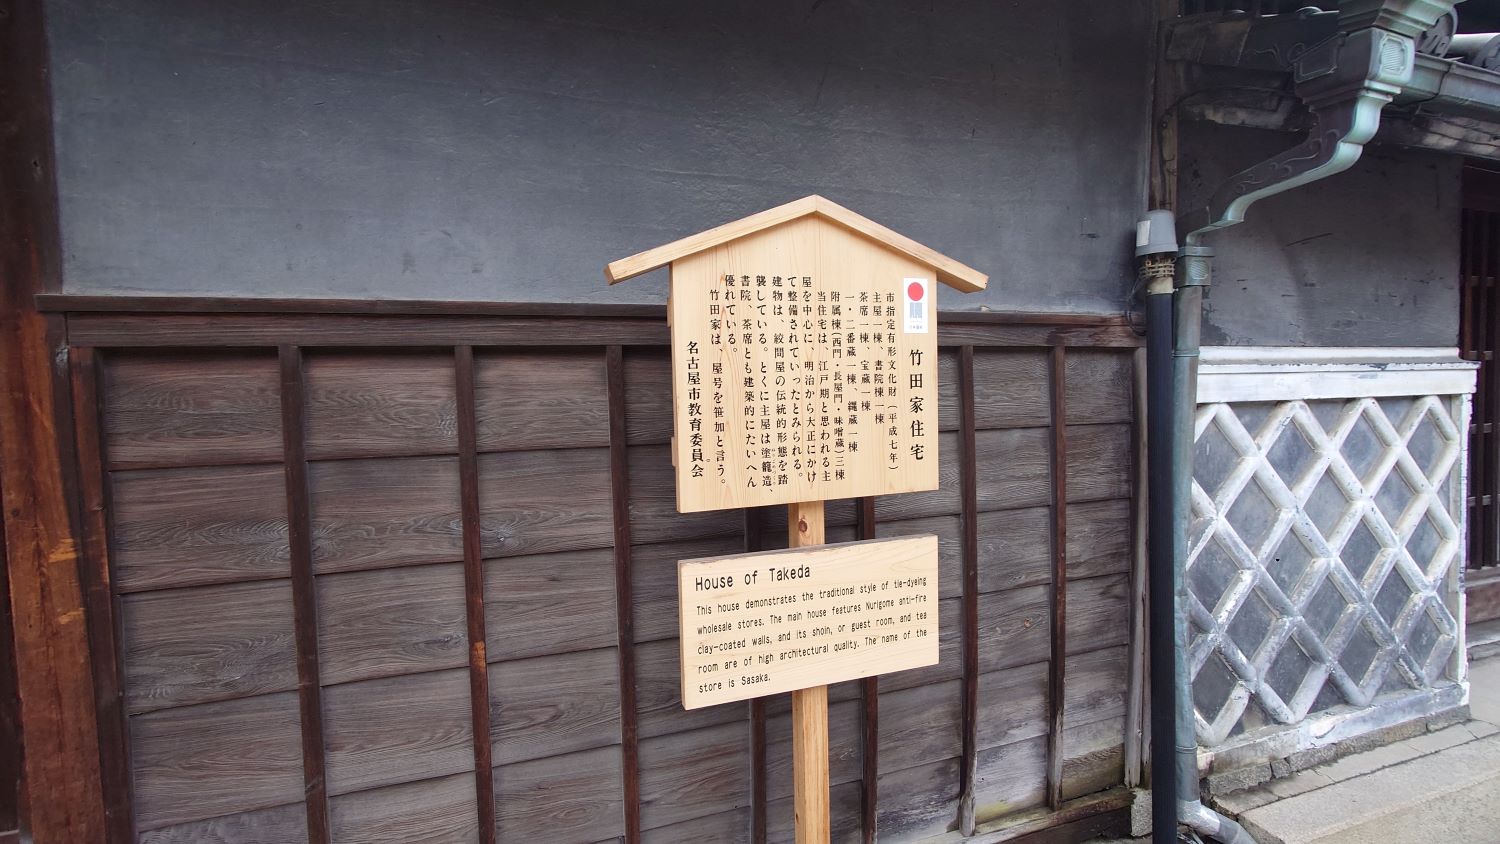 竹田家住宅
市指定有形文化財(平成七年)
主屋一棟、書院棟一棟
茶席一棟、宝蔵一棟
一・二番蔵一棟、縄蔵一棟
附属棟(西門・長屋門・味噌蔵)三棟
当住宅は、江戸期と思われる主
屋を中心に、明治から大正にかけ
て整備されていったとみられる。
建物は、絞問屋の伝統的形態を踏
襲している。とくに主屋は塗籠造、
書院、茶席とも建築的にたいへん
優れている。
竹田家は、屋号を笹加と言う。
名古屋市教育委員会
House of Takeda
This house demonstrates the traditional style of tie-dyeing
wholesale stores. The main house features Nurigome anti-fire
clay-coated walls, and its shoin, or guest room, and tea
room are of high architectural quality. The name of the
store is Sasaka.